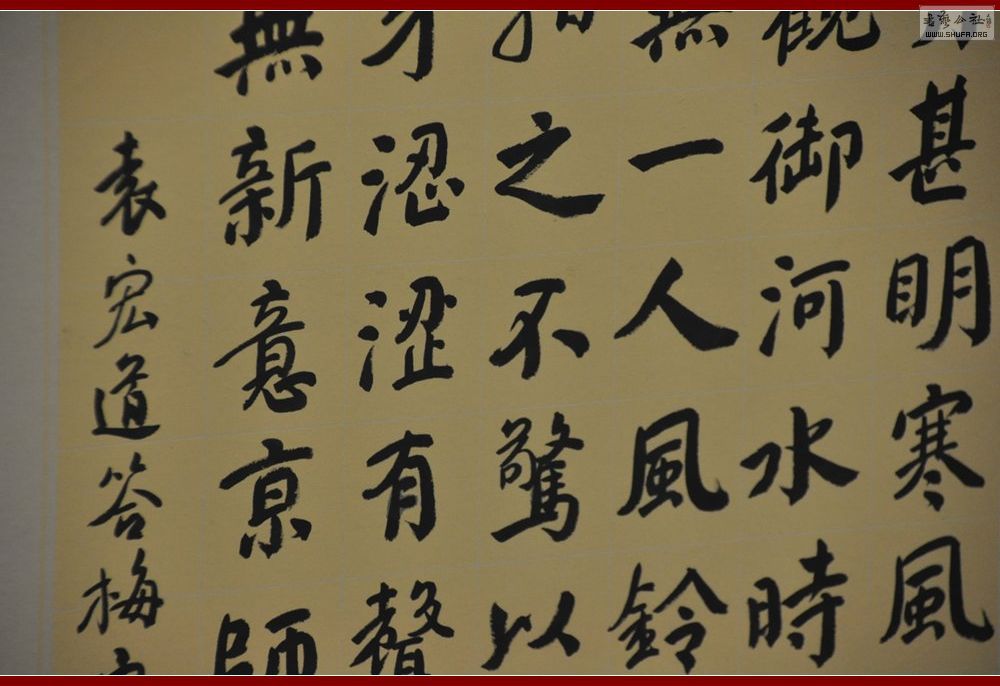 甚明寒風
觀御河水時
無一人風鈴
之不驚以
涊澀有聲
無新意京師
袁宏道答梅
書藝公社
WWW.SHUFA.ORG